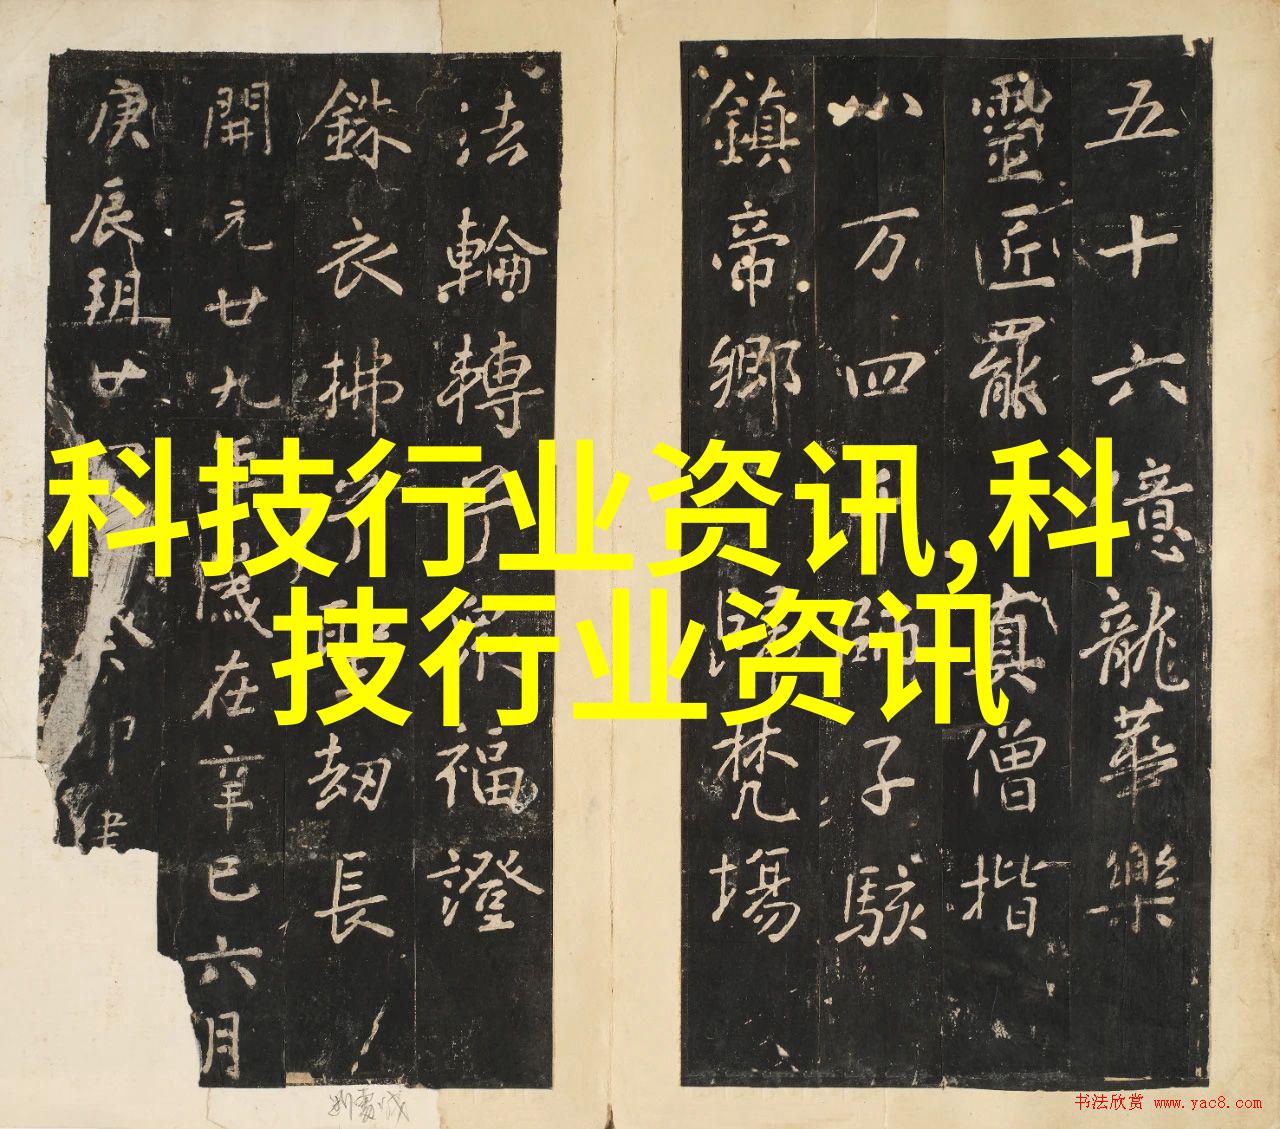 五十六億龍華樂
靈匠罷
真僧揩
八万四
子駭
鎮帝鄉
梵場
法輪轉
福證
銖衣拂
劫長
開元廿九
歲在辛巳六月
庚辰朔廿
科技行业资讯,科
技行业资讯
书法欣赏 www.yac8.com